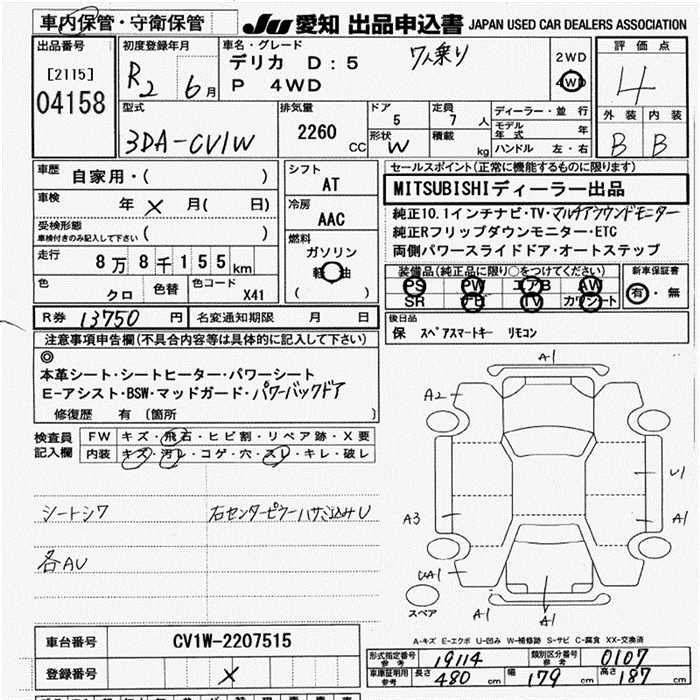 車内保管・守衛保管
JU 愛知 出品申込書 JAPAN USED CAR DEALERS ASSOCIATION
出品番号
[2115]
04158
初度登録年月
R2 年 6月
車名・グレード
デリカ D:5
P 4WD
7人乗り
2WD
4WD
評価点
4
外装 内装
B B
型式
3DA-CV1W
排気量
2260 CC
ドア
5
形状
W
定員
7 人
積載
kg
ディーラー・並行
モデル年式 年
ハンドル 左・右
車歴
自家用・( )
車検
年 × 月( 日)
受検形態
車検付きのみ記入して下さい ( )
走行
8万8千155km
色
クロ
色替
色コード
X41
シフト
AT
冷房
AAC
燃料
ガソリン
軽油
( )
セールスポイント(正常に機能するものに限ります)
MITSUBISHIディーラー出品
純正10.1インチナビ・TV・マルチアラウンドモニター
純正Rフリップダウンモニター・ETC
両側パワースライドドア・オートステップ
装備品(純正品に限り○をつけてください)
PS PW エアB AW
SR ナビ TV カワシート
新車保証書
有・無
R券 13750 円 名変通知期限 月 日
後日品
保 スペアスマートキー リモコン
注意事項申告欄(不具合内容等は具体的に記入して下さい)
◎
本革シート・シートヒーター・パワーシート
E-アシスト・BSW・マッドガード・パワーバックドア
修復歴 有 〔箇所 〕
検査員記入欄
FW キズ・飛石・ヒビ割・リペア跡・X要
内装 キズ・汚レ・コゲ・穴・スレ・キレ・破レ
シートシワ
右センターピラーハサミ込みU
各AU
A1
A2
U1
A3
A1
UA1
A1
A1
A1
スペア
A-キズ E-エクボ U-凹み W-補修跡 S-サビ C-腐食 XX-交換済
車台番号
CV1W-2207515
登録番号
×
形式指定番号 参考
19114
類別区分番号 参考
0107
車庫証明用 参考
長さ 480 cm 幅 179 cm 高さ 187 cm